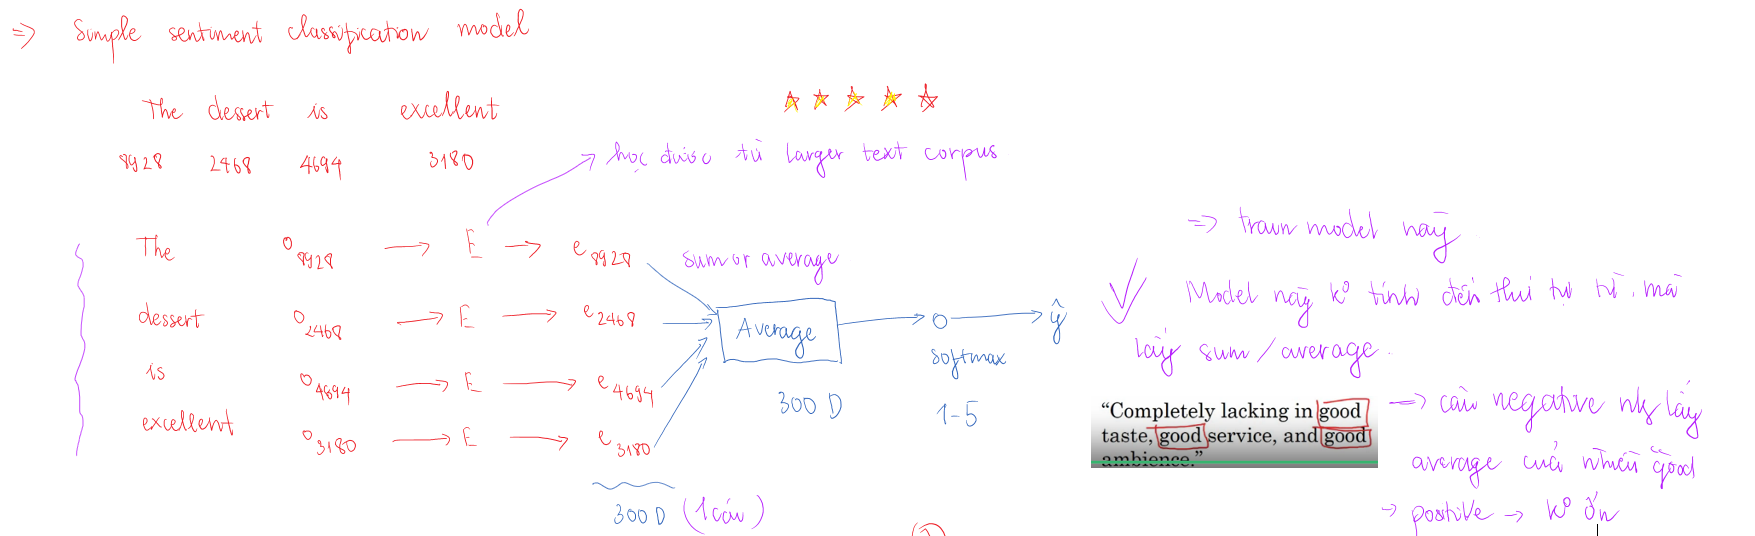 => Simple sentiment classification model
The dessert is excellent
8928 2468 4694 3180
học được từ larger text corpus
The o8928 → E → e8928
sum or average
dessert o2468 → E → e2468
is o4694 → E → e4694
excellent o3180 → E → e3180
300 D (1 câu)
Average
300 D
softmax
1-5
ŷ
=> train model này
Model này ko tính đến thứ tự từ, mà
lấy sum / average.
"Completely lacking in good
taste, good service, and good
ambience."
→ câu negative nhg lấy
average của nhiều good
→ positive → ko ổn